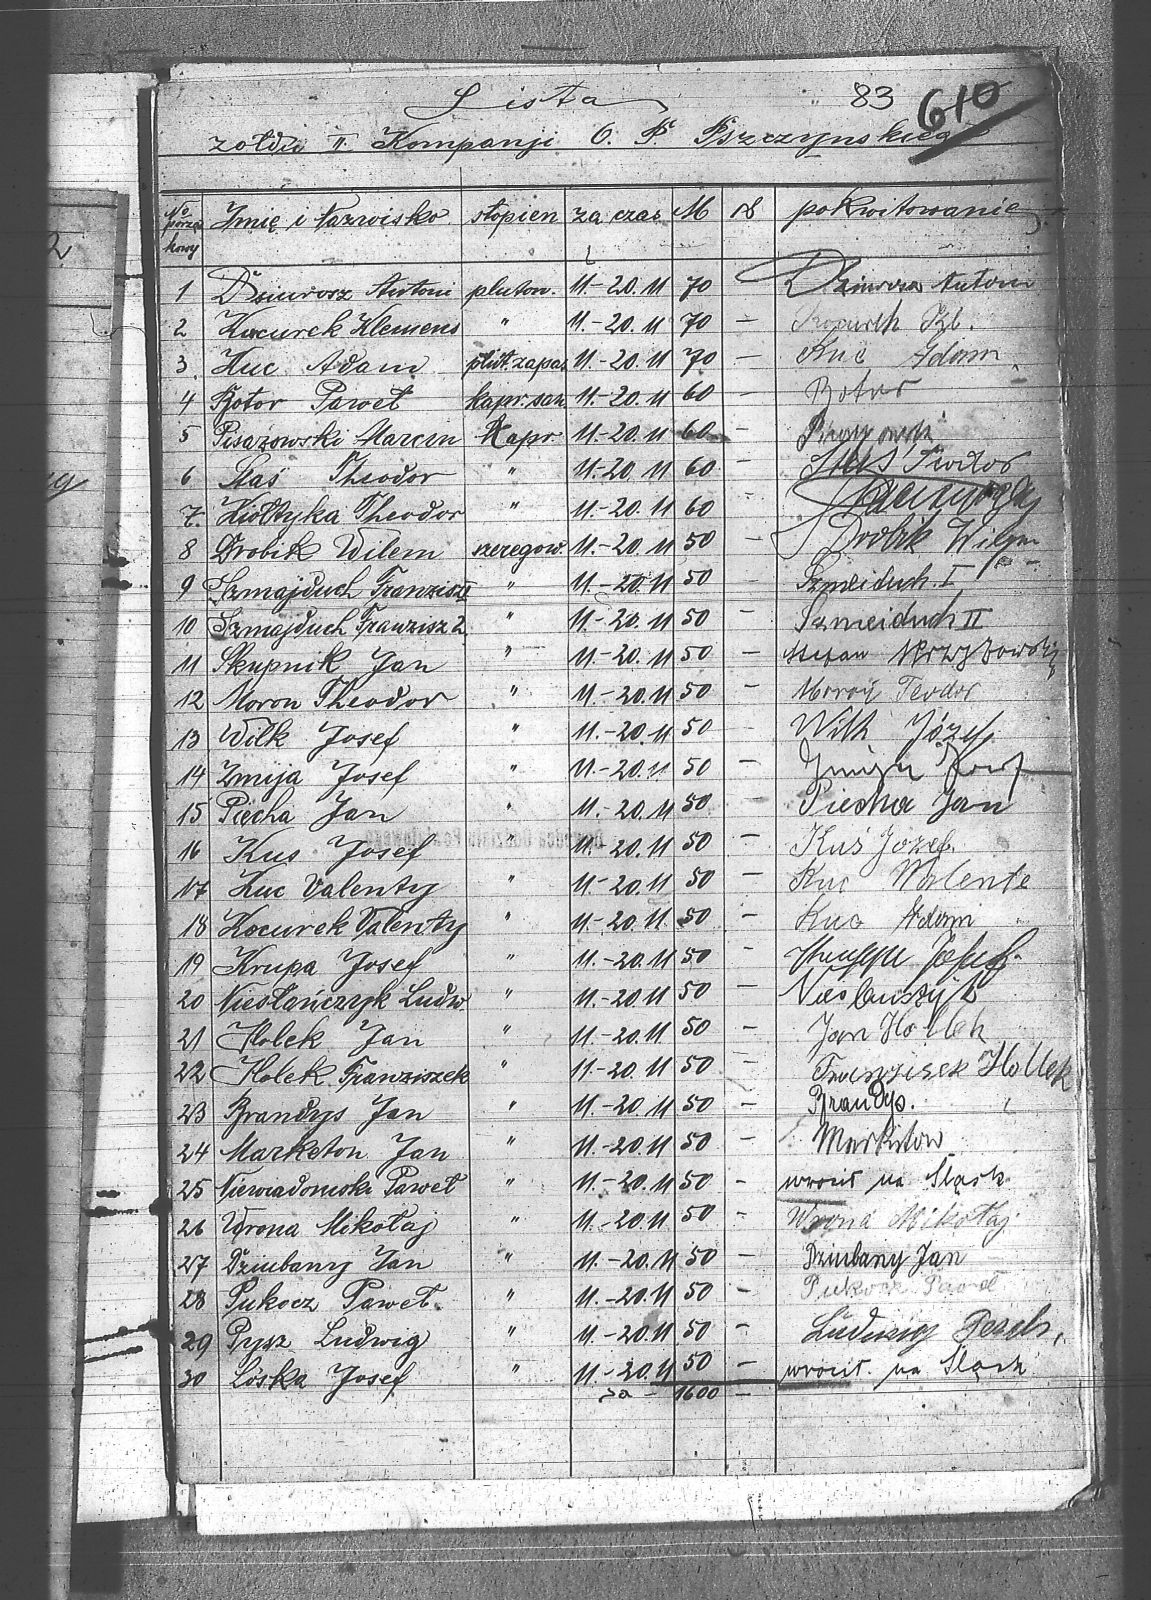 83 610
Lista
żołdu II Kompanji O. P. Pszczyńskiego
No porządkowy Imię i Nazwisko stopień za czas M pokwitowanie
1 Dziurosz Antoni pluton. 11.-20.11 70 — Antoni
2 Kocurek Klemens " 11.-20.11 70 —
3 Kuc Adam plut. zapas 11.-20.11 70 — Kuc Adam
4 Botor Paweł kapr. san. 11.-20.11 60 — Botor
5 Pisarzowski Marcin Kapr 11.-20.11 60 —
6 Staś Theodor " 11.-20.11 60 —
7. Kiołtyka Theodor " 11.-20.11 60 —
8 Drobik Wilem szeregow. 11.-20.11 50 — Drobik Wilem
9 Szmajduch Franzisz " 11.-20.11 50 — Szmeiduch I
10 Szmajduch Franzisz 2. " 11.-20.11 50 — Szmeiduch II
11 Skupnik Jan " 11.-20.11 50 — Stefan
12 Moron Theodor " 11.-20.11 50 — Moroń Teodor
13 Wilk Josef " 11.-20.11 50 — Józef
14 Zmija Josef " 11.-20.11 50 —
15 Piecha Jan " 11.-20.11 50 — Piecha Jan
16 Kus Josef " 11.-20.11 50 — Kuś Józef.
17 Kuc Valenty " 11.-20.11 50 — Kuc Walente
18 Kocurek Valenty " 11.-20.11. 50 — Kuc Adam
19 Krupa Josef " 11.-20.11 50 — Josef
20 Niesłańczyk Ludw. " 11.-20.11 50 —
21 Holek Jan " 11.-20.11 50 — Jan Hollek
22 Holek Franziszek " 11.-20.11 50 — Franzisek Hollek
23 Brandys Jan " 11.-20.11 50 — Brandys.
24 Marketon Jan " 11.-20.11 50 — Markitow
25 Niewiadomski Paweł " 11.-20.11 50 — wrócił na Śląsk
26 Wrona Mikołaj " 11.-20.11 50 — Wrona Mikołaj
27 Dziubany Jan " 11.-20.11 50 — Dziubany Jan
28 Pukocz Paweł. " 11.-20.11 50 — Pukocz Paweł
29 Pysz Ludwig " 11.-20.11 50 — Ludwig
30 Loska Josef " 11.-20.11 50 — wrócił na Śląsk
1600 —